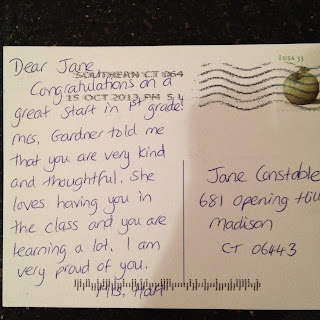 Dear Jane
Congratulations on a
SOUTHERN CT 064
great start in 1st grade!
15 OCT 2013 PM 5 L
Mrs. Gardner told me
that you are very kind
and thoughtful. She
loves having you in
the class and you are
learning a lot. I am
very proud of you.
Mrs. Hart
USA 33
Jane Constable
681 Opening Hill
Madison
CT 06443